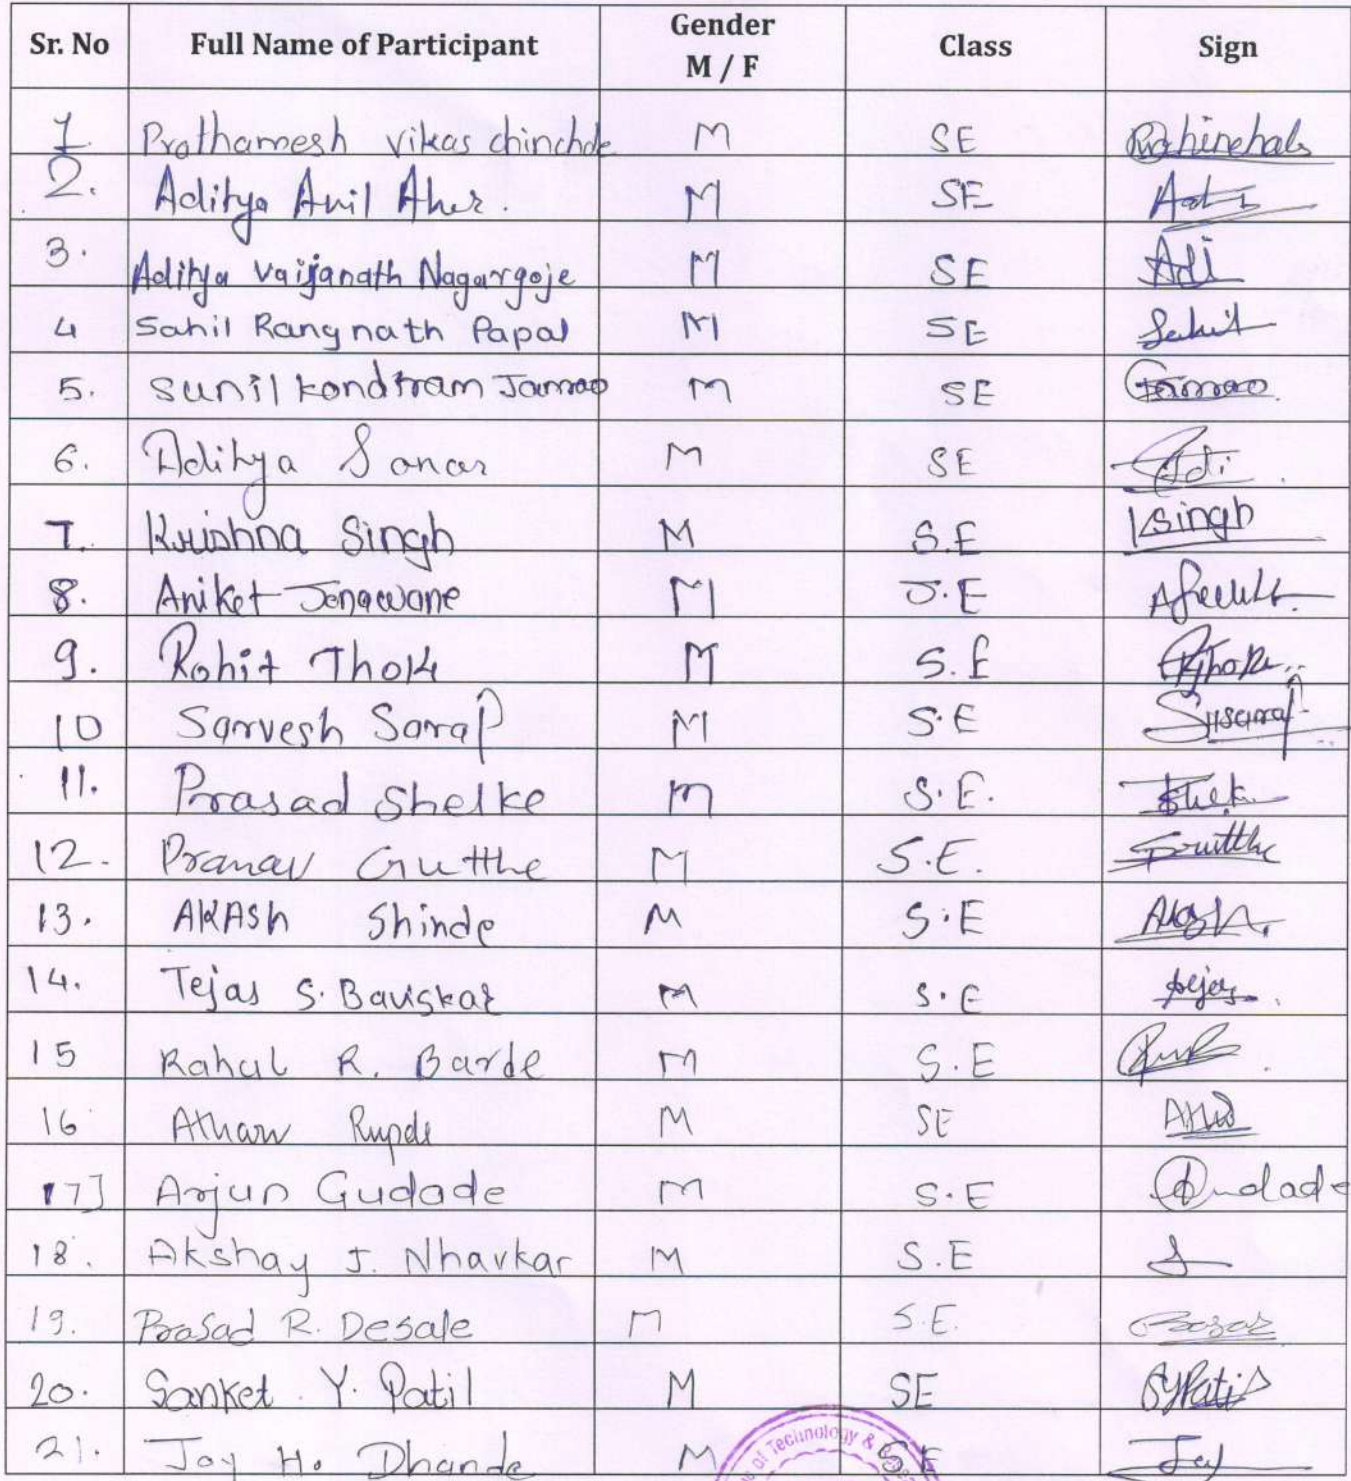 Sr. No Full Name of Participant Gender M / F Class Sign
1 Prathamesh vikas chinchole M SE
2. Aditya Anil Aher. M SE
3. Aditya vaijanath Nagargoje M SE Adi
4 Sahil Rangnath Papal M SE Sahil
5. Sunil kondtram Jamrao M SE Jamrao
6. Aditya Sonar M SE Adi
7. Krishna Singh M S.E KSingh
8. Aniket Sonawane M S.E
9. Rohit Thoke M S.E RThoke
10 Sarvesh Sarap M S.E SUSarap
11. Prasad Shelke M S.E.
12. Pranav Gutthe M S.E. Gutthe
13. AKASh Shinde M S.E Akash
14. Tejas S. Baviskar M S.E Tejas
15 Rahul R. Barde M S.E
16 Atharv Rupde M SE
17] Arjun Gudade M S.E Gudade
18. Akshay J. Nhavkar M S.E
19. Prasad R. Desale M S.E.
20. Sanket Y. Patil M SE SYPatil
21. Jay H. Dhande M SE Jay
of Technology &